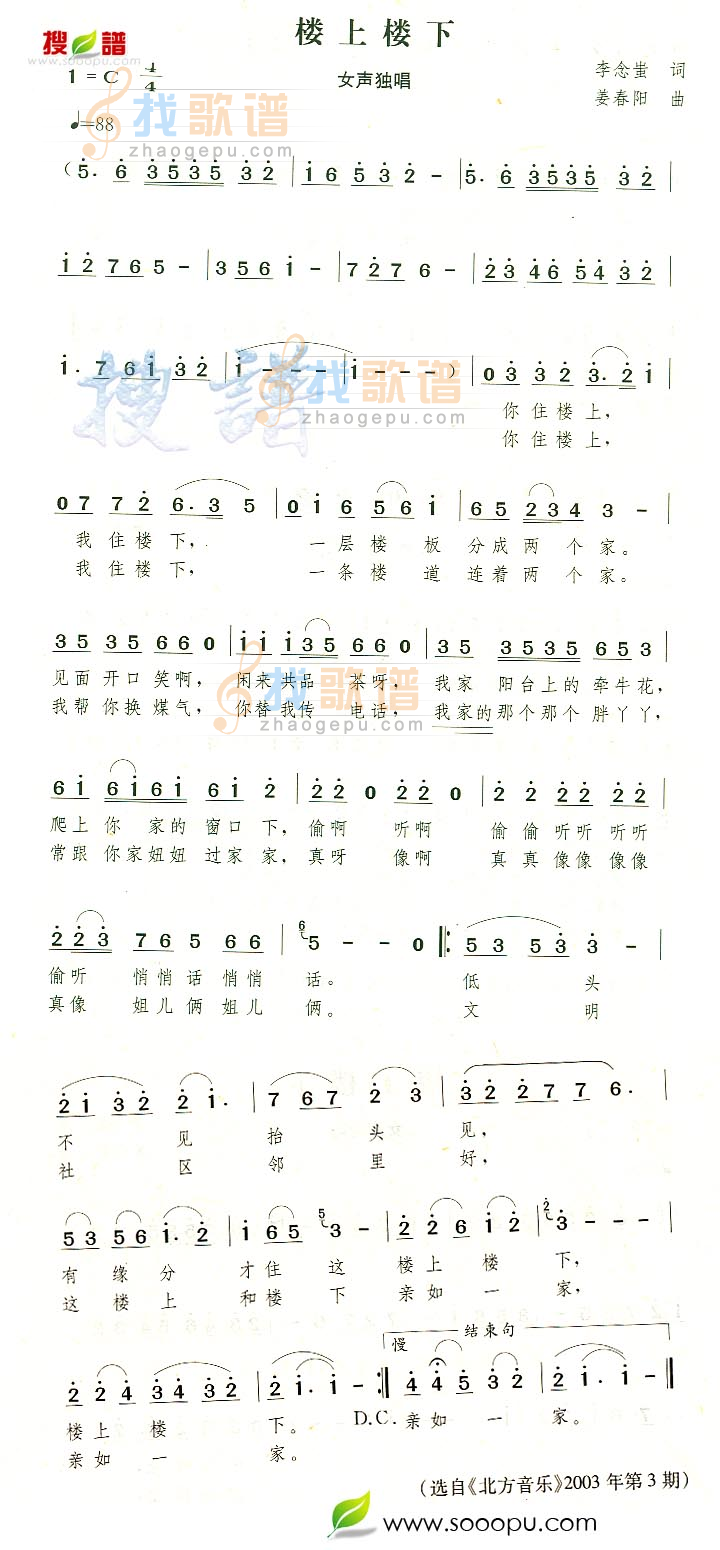 楼上楼下
搜譜
www.sooopu.com
1=C 4/4
女声独唱
李念蚩 词
姜春阳 曲
♩=88
找歌谱
zhaogepu.com
(5. 6 3535 32 | 16 532 - | 5. 6 3535 32
12 765 - | 356 1 - | 727 6 - | 23 46 54 32
1. 7 61 32 | 1 - - - | 1 - - - ) | 03 332 3. 21
搜譜
找歌谱
zhaogepu.com
你住楼上,
你住楼上,
07 72 6. 3 5 | 01 6 561 | 65 234 3 -
我住楼下, 一层楼板分成两个家。
我住楼下, 一条楼道连着两个家。
35 35 660 | 11 135 660 | 35 3535 653
见面开口笑啊, 闲来共品茶呀, 我家阳台上的牵牛花,
我帮你换煤气, 你替我传电话, 我家的那个那个胖丫丫,
找歌谱
zhaogepu.com
61 6161 61 2 | 22 0 22 0 | 22 22 22 22
爬上你家的窗口下, 偷啊听啊偷偷听听听听
常跟你家妞妞过家家, 真呀像啊真真像像像像
2 23 76 5 66 | 6 5 - - 0 :| 53 53 3 -
偷听悄悄话悄悄话。 低头
真像姐儿俩姐儿俩。 文明
21 32 21. | 7 67 2 3 | 32 277 6.
不见抬头见,
社区邻里好,
53 56 1. 2 | 1 65 5 3 - | 2 26 12 | 2 3 - - -
有缘分才住这楼上楼下,
这楼上和楼下亲如一家,
慢 结束句
2 24 34 32 | 2 1. 1 - :| 4 45 32 | 2 1. 1 - |
楼上楼下。 D.C. 亲如一家。
亲如一家。
(选自《北方音乐》2003年第3期)
www.sooopu.com